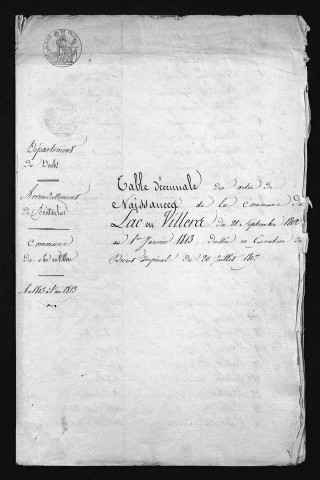 Département
du Doubs
Arrondissement
de Pontarlier
Commune
de Lac ou Villers
An 1803 à l'an 1813
Table décennale des actes de
Naissances de la commune du
Lac ou Villers du 21 Septembre 1802
au 1er Janvier 1813, dressée en Exécution du
Décret Impérial du 20 Juillet 1807